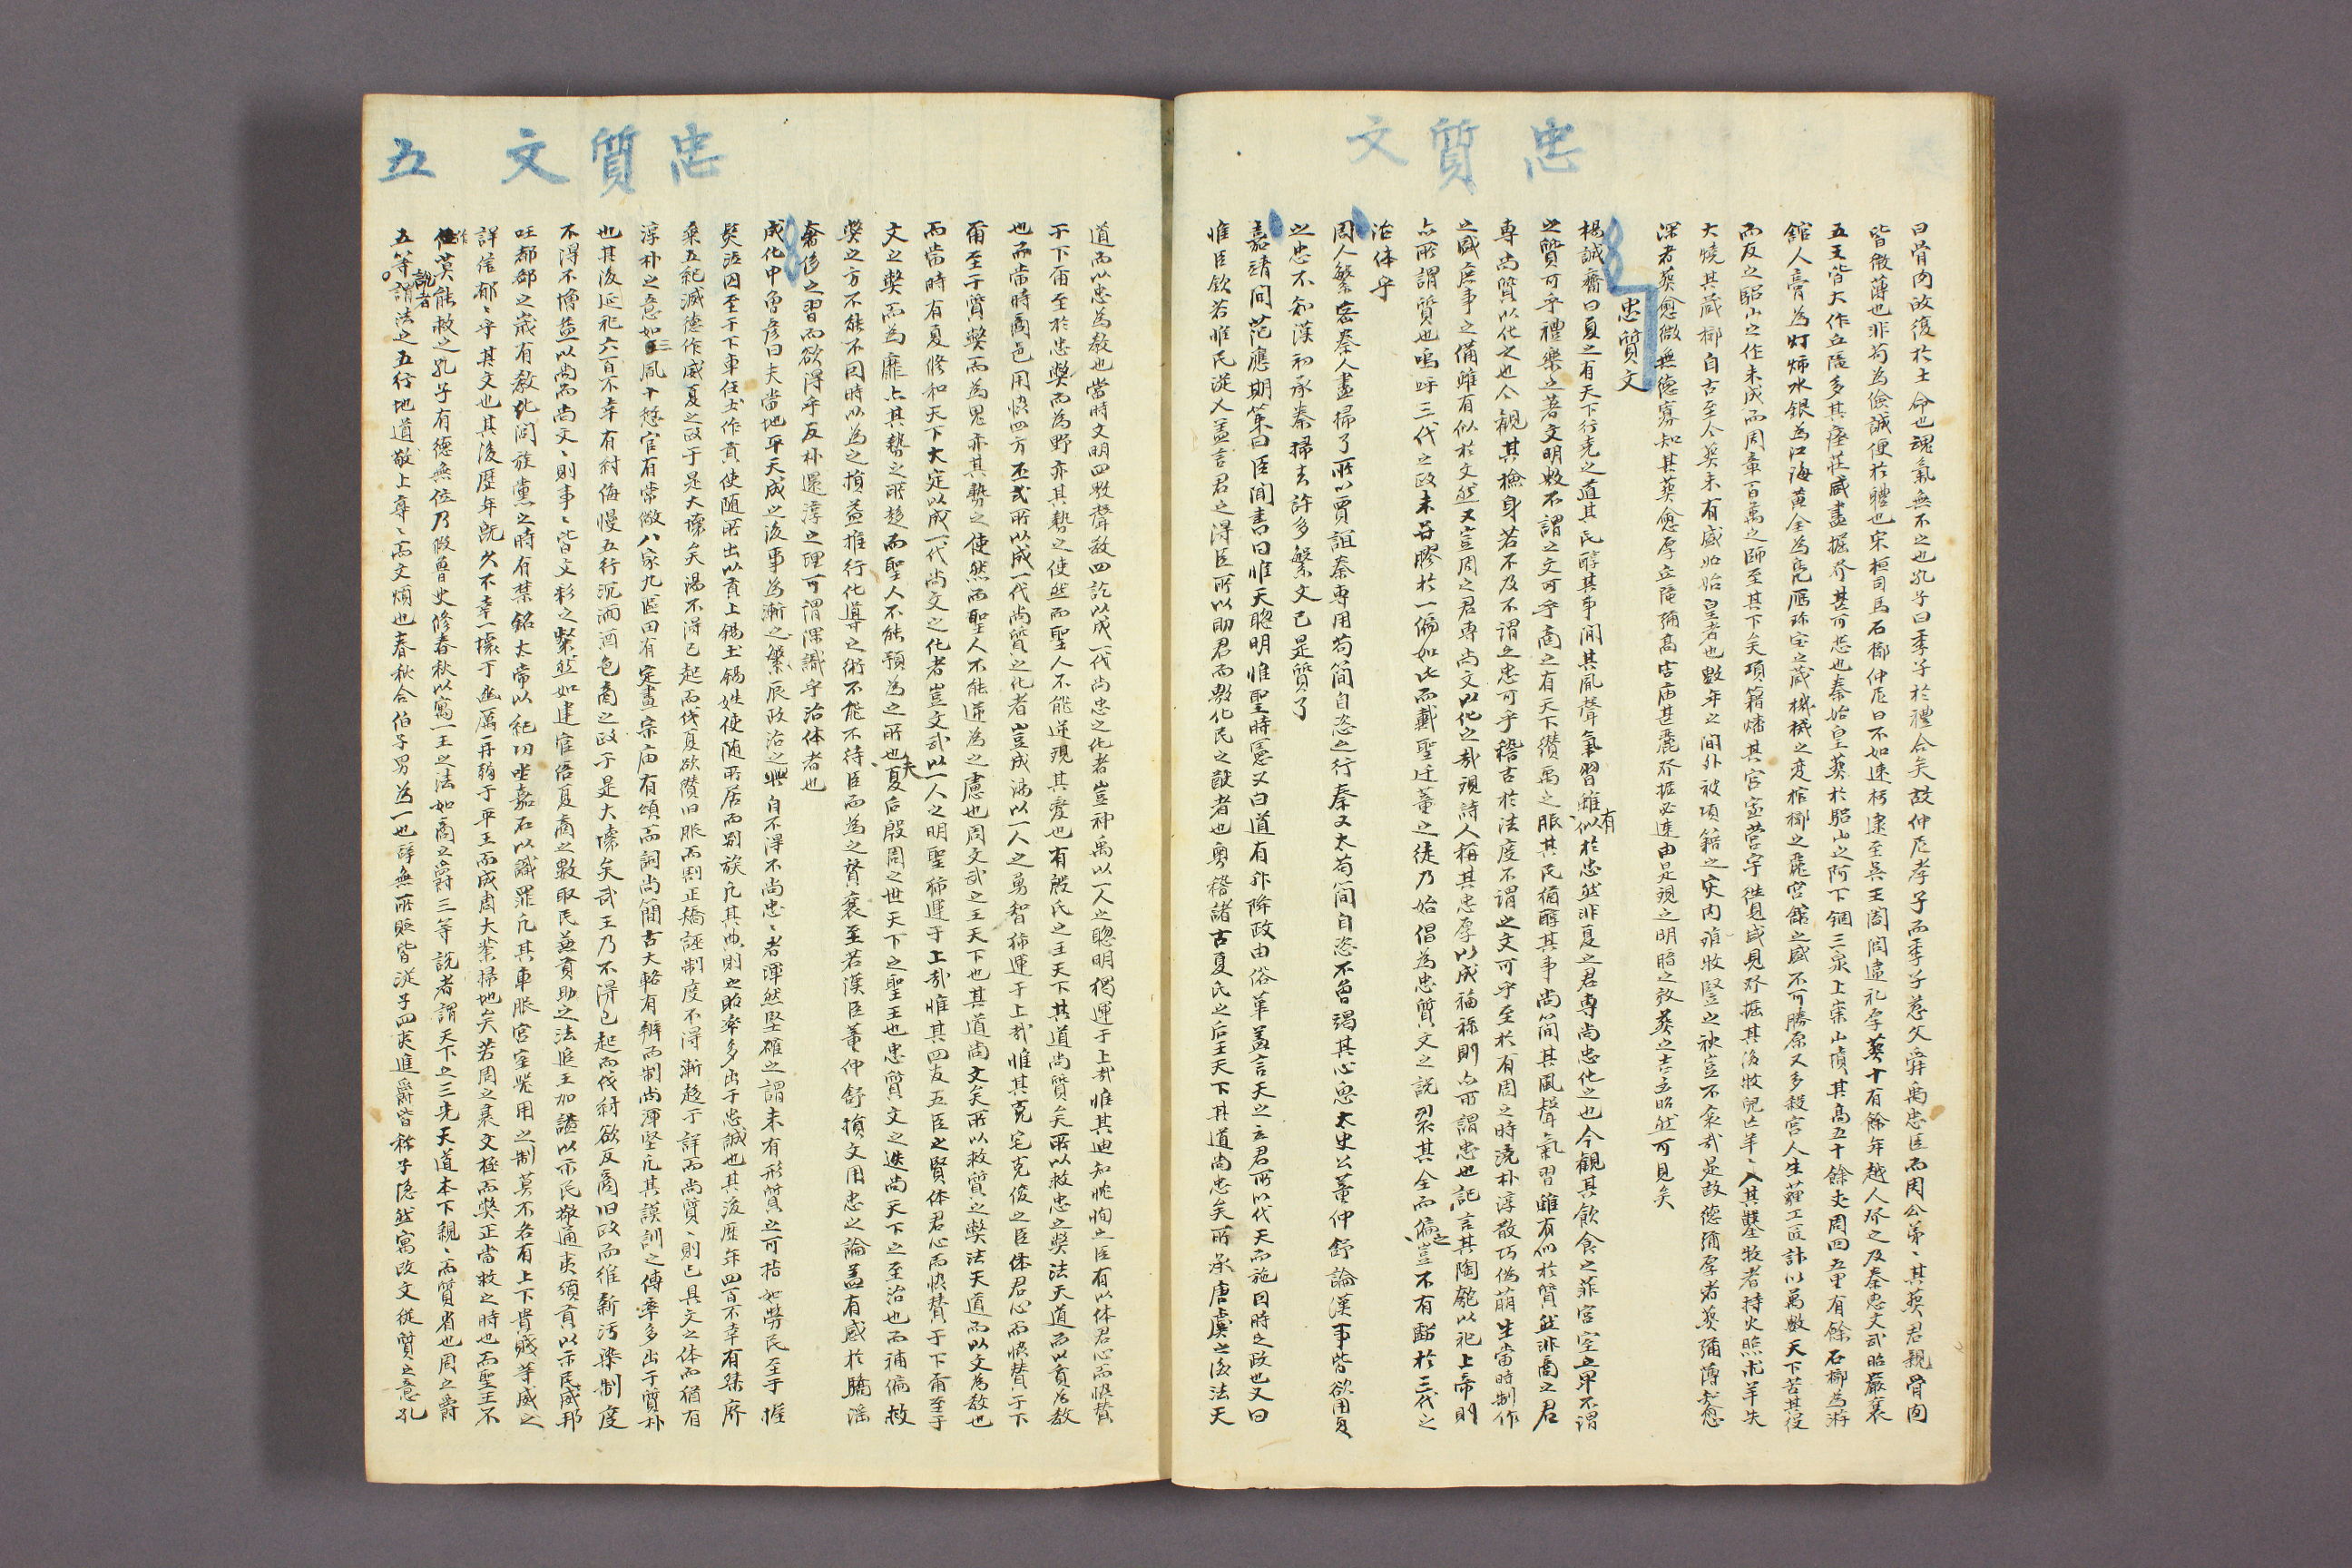 忠質文
曰骨肉歸復於土命也魂氣無不之也孔子曰季子於禮合矣故仲尼孝子而季子慈父舜禹忠臣而周公弟〻其葬君親骨肉
皆微薄也非苟為儉誠便於體也宋桓司馬石槨仲尼曰不如速朽逮至吳王闔閭違礼厚葬十有餘年越人發之及秦惠文武昭嚴襄
五王皆大作丘隴多其瘞莊咸盡掘發甚可悲也秦始皇葬於驪山之阿下錮三泉上崇山墳其高五十餘丈周回五里有餘石槨為游
館人膏為灯燭水銀為江海黃金為鳧雁珎宝之藏機械之変棺槨之麗宮館之盛不可勝原又多殺宮人生薶工匠計以萬數天下苦其役
而反之驪山之作未成而周章百萬之師至其下矣項籍燔其宮室營宇徃見咸見發掘其後牧兒亡羊〻入其鑿牧者持火照求羊失
火燒其藏槨自古至今葬未有盛如始皇者也數年之間外被項籍之灾內離牧豎之禍豈不哀哉是故德彌厚者葬彌薄知愈
深者葬愈微無德寡知其葬愈厚丘隴彌高宮庙甚麗發掘必速由是観之明暗之效葬之吉凶昭然可見矣
忠質文
楊誠齋曰夏之有天下行尭之道其民醇其事簡其風聲氣習雖有似於忠然非夏之君専尚忠化之也今観其飲食之菲宮室之卑不謂
之質可乎禮樂之著文明敷不謂之文可乎商之有天下纘禹之服其民猶醇其事尚簡其風聲氣習雖有似於質然非商之君
専尚質以化之也今観其撿身若不及不謂之忠可乎稽古於法度不謂之文可乎至於有周之時澆朴淳散巧偽萠生當時制作
之盛庶事之備雖有似於文然又豈周之君専尚文以化之哉観詩人稱其忠厚以成福祿則亦所謂忠也記言其陶匏以祀上帝則
亦所謂質也嗚呼三代之政未甞膠於一偏如此而戴聖迁董之徒乃始倡為忠質文之說裂其全而偏之豈不有䵝於三代之
治体乎
周人繁密秦人盡掃了所以賈誼秦専用苟簡自恣之行秦又太苟簡自恣不曾竭其心思太史公董仲舒論漢事皆欲用夏
之忠不知漢初承秦掃去許多繁文已是質了
嘉靖間范應期策曰臣聞書曰惟天聦明惟聖時憲又曰道有升降政由俗革盖言天之立君所以代天而施因時之政也又曰
惟臣欽若惟民従乂盖言君之得臣所以助君而敷化民之猷者也臾稽諸古夏氏之后王天下其道尚忠矣所承唐虞之後法天
忠質文 五
道而以忠為教也當時文明四敷聲教四訖以成一代尚忠之化者豈神禹以一人之聦明獨運于上哉惟其迪知忱恂之臣有以体君心而恊賛
于下甭至於忠弊而為野亦其勢之使然而聖人不能逆観其變也有殷氏之王天下其道尚質矣所以救忠之弊法天道而以質為教
也而當時商邑用恊四方丕式所以成一代尚質之化者豈成湯以一人之勇智獨運于上哉惟其克宅克俊之臣体君心而恊賛于下
甭至于質弊而為鬼亦其勢之使然而聖人不能逆為之慮也周文武之王天下也其道尚文矣所以救質之弊法天道而以文為教也
而當時有夏修和天下大定以成一代尚文之化者豈文武以一人之明聖獨運于上哉惟其四友五臣之賢体君心而恊賛于下甭至于
文之弊而為靡亦其勢之所趍而聖人不能預為之所也夫夏后殷周之世天下之聖王也忠質文之迭尚天下之至治也而補偏救
弊之方不能不因時以為之損益推行化導之術不能不待臣而為之賛襄至若漢臣董仲舒損文用忠之論盖有感於驕滛
奢侈之習而欲淂乎反朴還淳之理可謂深識乎治体者也
成化中魯彦曰夫當地平天成之後事為漸之繁辰政治之興自不得不尚忠〻者渾然堅確之謂未有形質之可指如勞民至于握
髪涖囚至于下車任土作貢使随所出以貢上錫土錫姓使随所居而别族凡其典則之貽率多出于忠誠也其後歴年四百不幸有桀庥
棄五紀滅德作威夏之政于是大壞矣湯不得已起而伐夏欲賛旧服而割正矯誣制度不得漸趍于詳而尚質〻則已具文之体而猶有
淳朴之意如三風十愆官有常儆八家九區田有定畫宗庙有頌而詞尚簡古大輅有辨而制尚渾堅凡其謨訓之傳率多出于質朴
也其後延祀六百不幸有紂侮慢五行沉湎酒色商之政于是大壞矣武王乃不得已起而伐紂欲反商旧政而維新汚染制度
不得不增益以尚而尚文〻則事〻皆文彩之繁然如建官倍夏商之數取民兼貢助之法追王加謚以示民敬通夷須貢以示民威邦
旺都鄙之崴有教化閭族黨之時有禁銘太常以紀功坐嘉石以讖罪凡其車服宮室器用之制莫不各有上下貴賎等威之
詳信郁〻乎其文也其後歴年旣久不幸一壞于幽厲再弱于平王而成周大業掃地矣若周之衰文極而弊正當救之時也而聖王不
作莫能救之孔子有德無位乃假魯史修春秋以寓一王之法如商之爵三等說者謂天下之三光天道本下親〻而質省也周之爵
五等說者謂法之五行地道敬上尊〻而文煩也春秋合伯子男為一也辭無所貶皆従子四夷進爵皆稱子隐然寓改文従質之意孔